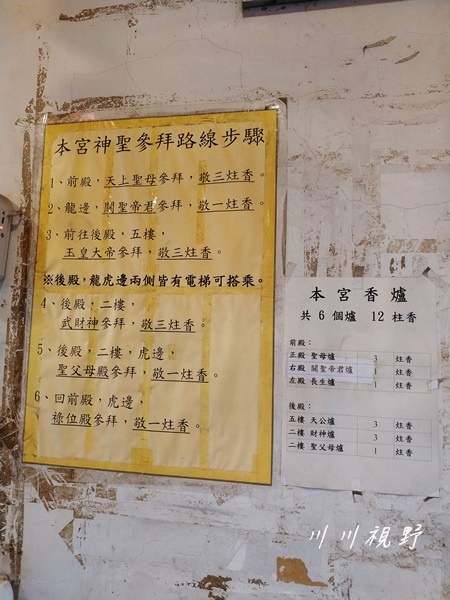 本宮神聖參拜路線步驟
1、前殿，天上聖母參拜，敬三炷香。
2、龍邊，關聖帝君參拜，敬一炷香。
3、前往後殿，五樓，
玉皇大帝參拜，敬三炷香。
※後殿，龍虎邊兩側皆有電梯可搭乘。
4、後殿，二樓，
武財神參拜，敬三炷香。
5、後殿，二樓，虎邊，
聖父母殿參拜，敬一炷香。
6、回前殿，虎邊，
祿位殿參拜，敬一炷香。
本宮香爐
共6個爐 12柱香
前殿：
正殿 聖母爐 3 炷香
右殿 關聖帝君爐 1 炷香
左殿 長生爐 1 炷香
後殿：
五樓 天公爐 3 炷香
二樓 財神爐 3 炷香
二樓 聖父母爐 1 炷香
川川視野